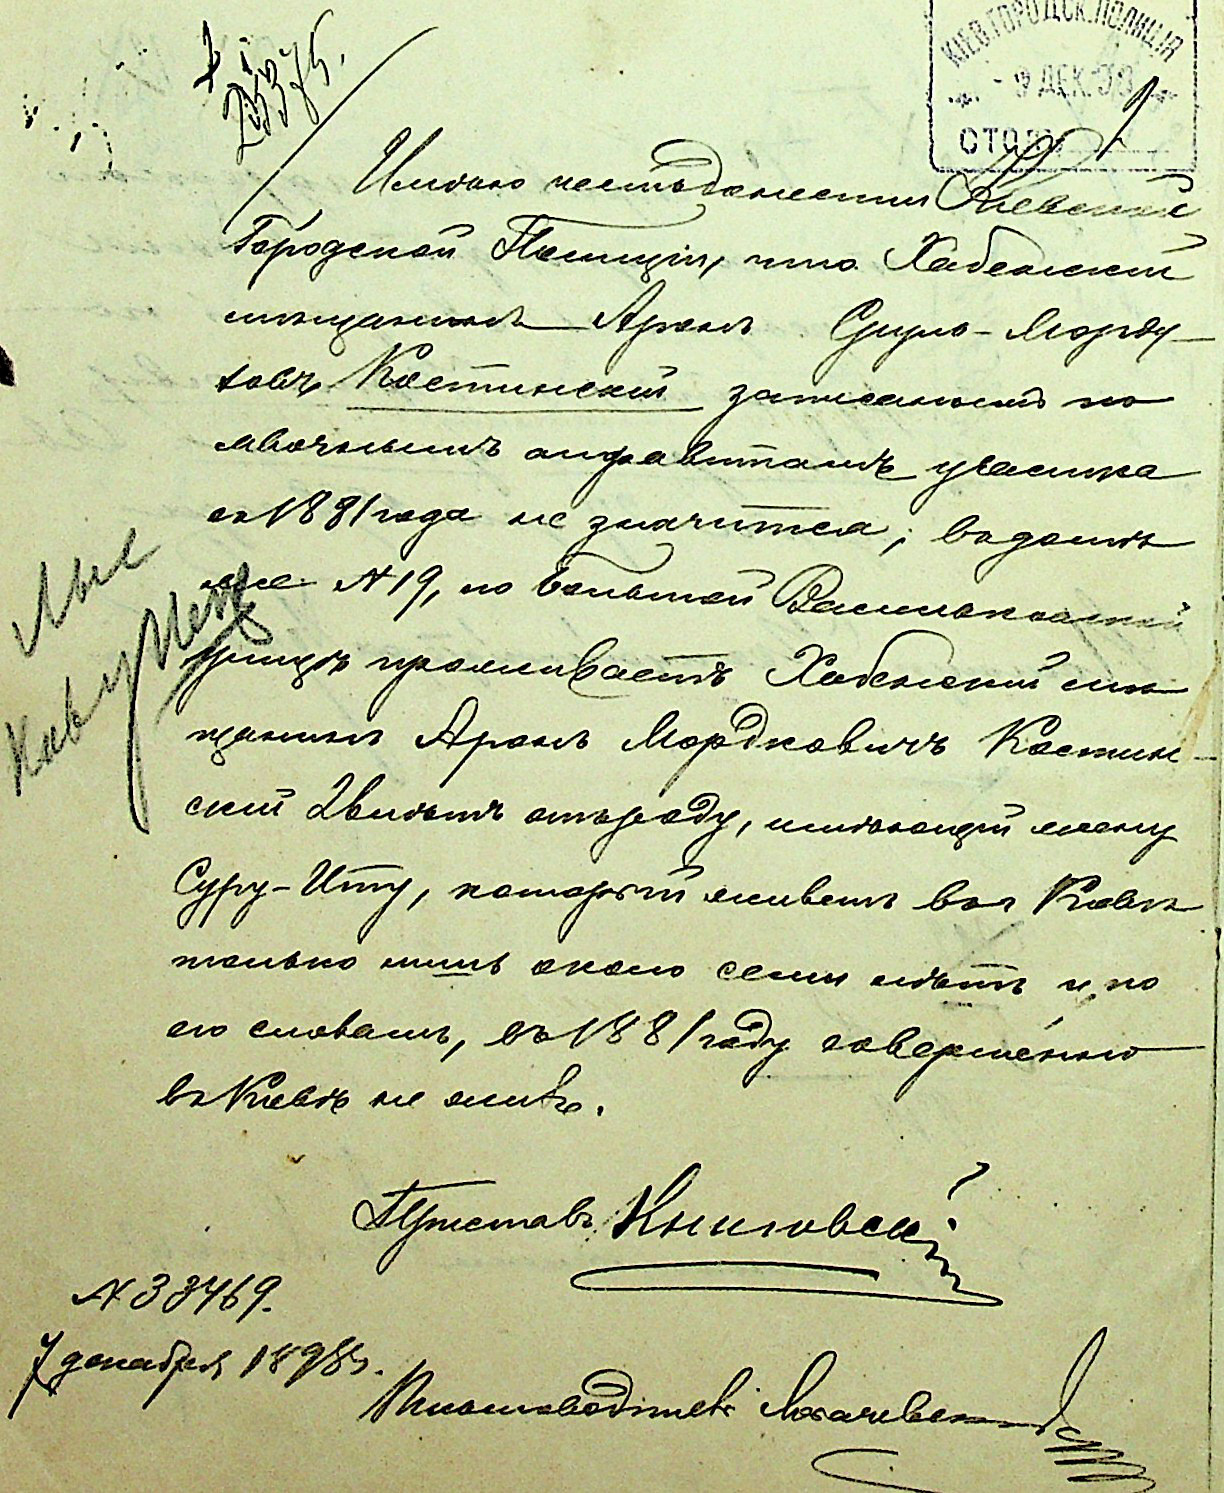 КІЕВ.ГОРОДСК.ПОЛИЦІЯ
9 ДЕК.93
СТОЛЪ
Имѣю честь донести Кіевской
Городской Полиціи, что Хабенскій
мѣщанинъ Аронъ Сруль-Мордु-
ковъ Костинскій записаннымъ по
явочнымъ алфавитамъ участка
съ 1881 года не значится; въ домѣ
же № 19, по Большой Васильковской
улицѣ проживаетъ Хабенскій мѣ
щанинъ Аронъ Мордковичъ Костин-
скій лѣтъ отъ роду, имѣющій жену
Суру-Иту, который живетъ въ Кіевѣ
только лишь около семи лѣтъ и, по
его словамъ, въ 1881 году совершенно
въ Кіевѣ не жилъ.
Приставъ
№ 33469.
7 декабря 1893.
Письмоводитель